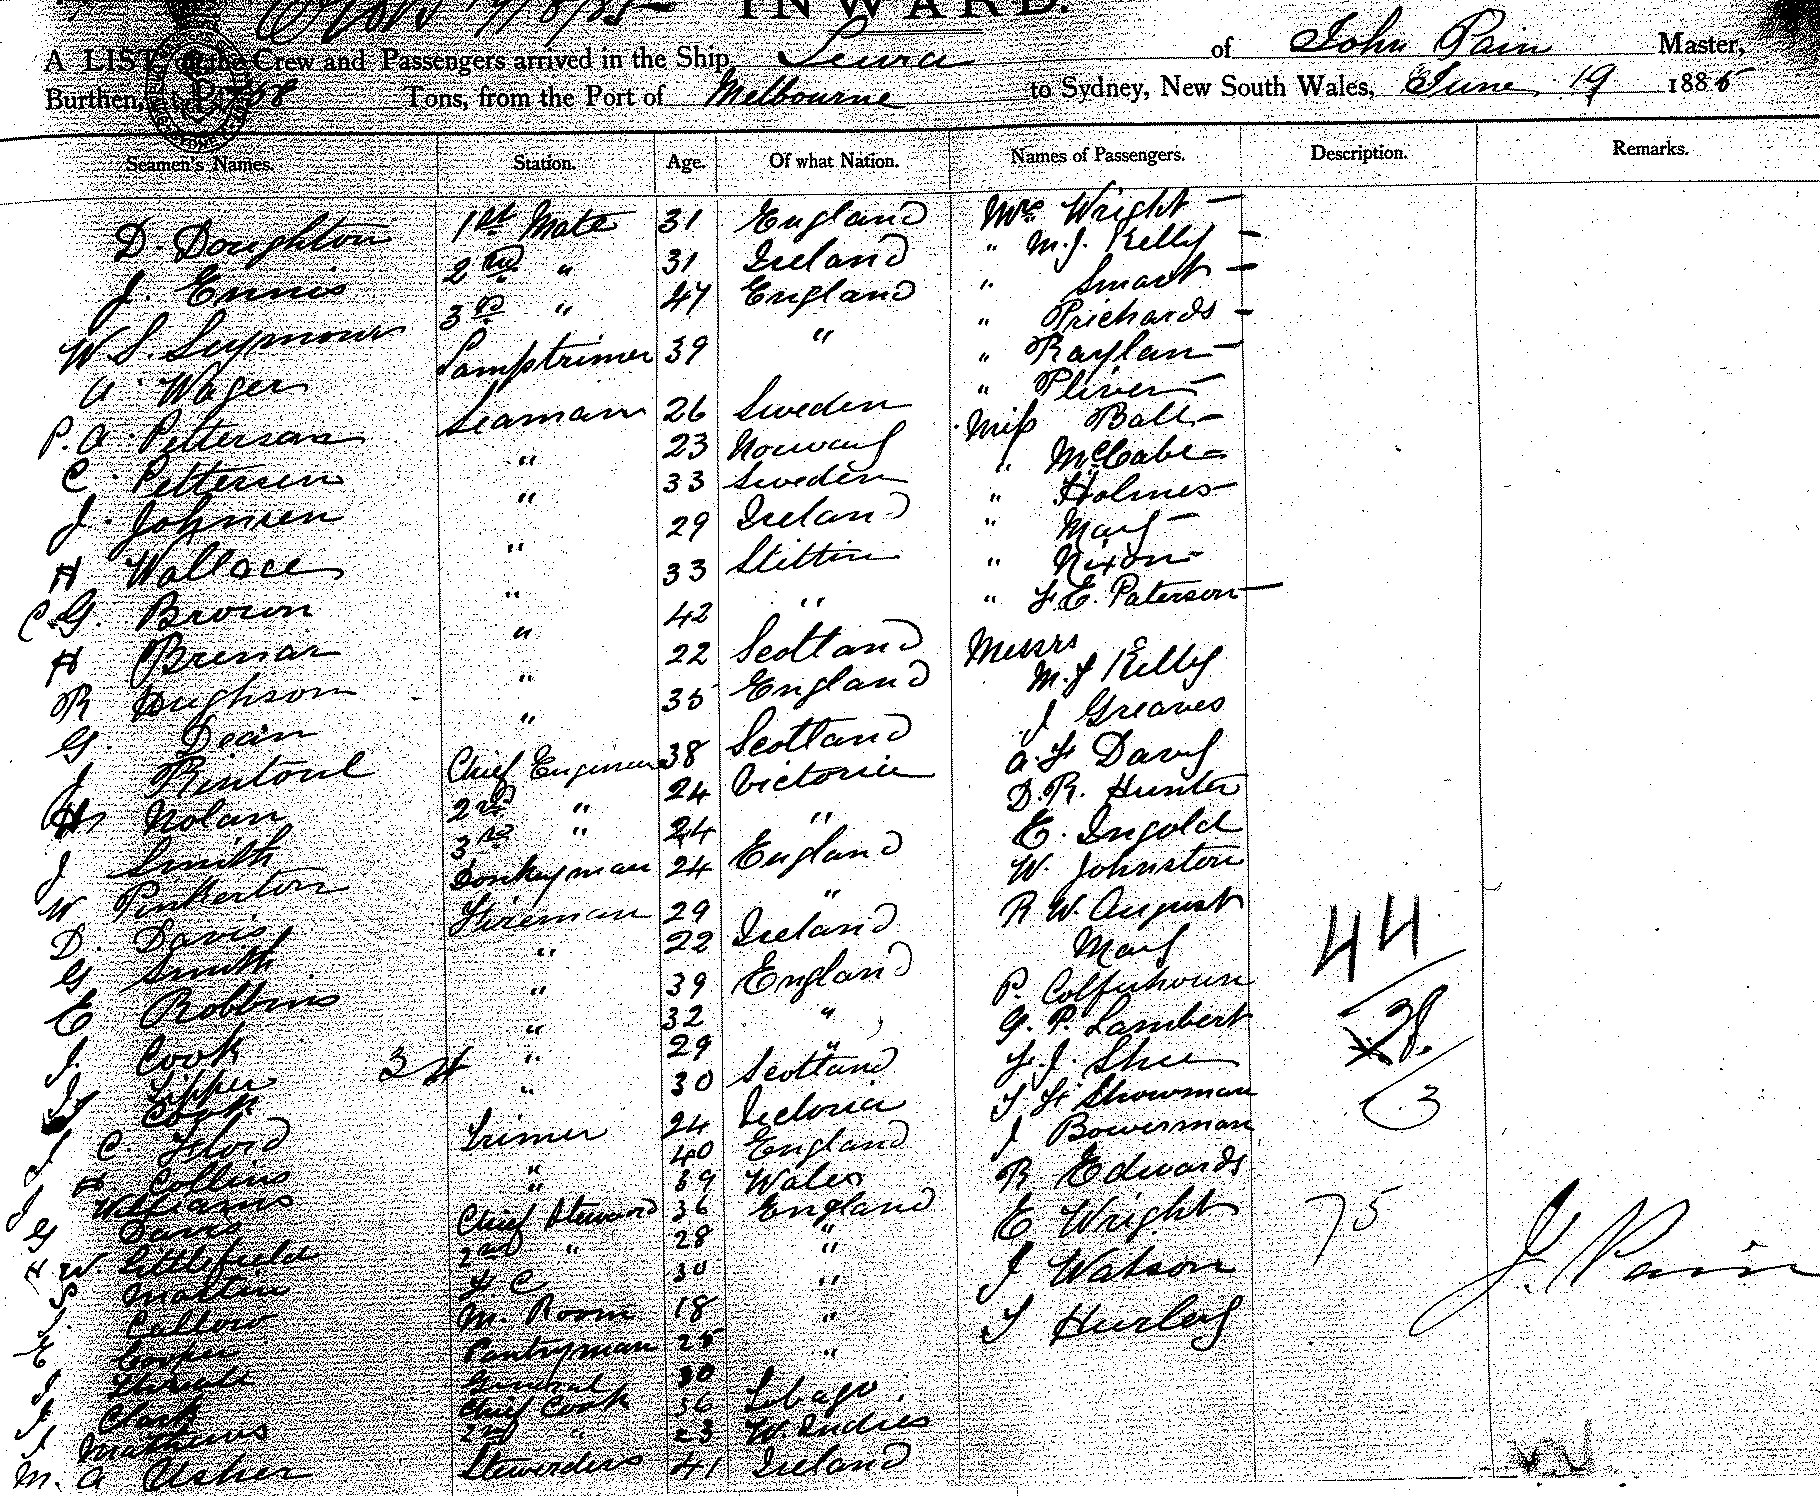 INWARD.
A LIST of the Crew and Passengers arrived in the Ship, Leura of John Pain Master,
Burthen, Tons, from the Port of Melbourne to Sydney, New South Wales, June 19 1885
Seamen's Names. Station. Age. Of what Nation. Names of Passengers. Description. Remarks.
D. Doughton 1st Mate 31 England Mrs Wright -
J. Ennis 2nd " 31 Ireland " M.J. Kelly -
W S. Seymour 3rd " 47 England " Smart -
A. Wager Lamptrimer 39 " " Prichards -
P. A. Petterson Seaman 26 Sweden " Raylan -
C. Pettersen " 23 Norway " Pliver -
J. Johnsen " 33 Sweden Miss Ball -
H Wallace " 29 Ireland " McCabe -
C. G. Brown " 33 Stittin " Holmes -
H Brenar " 42 " " Mary -
R Hughson " 22 Scotland " Nixon -
G. Dean " 35 England " F. E. Paterson -
J Rintoul Chief Engineer 38 Scotland Messrs
H Nolan 2nd " 24 Victoria M. J Kelly
J Smith 3rd " 24 " J Greaves
W Pinkerton Donkeyman 24 England A. F Davy
D. Davis Fireman 29 " D. R. Hunter
G Smith " 22 Ireland E. Ingold
E Robbins " 39 England W. Johnston
J. Cook " 32 " R W. August
Tipper " 29 " Mary
Cook " 30 Scotland P. Colquhoun
J C. Flord Trimer 24 Victoria G. P. Lambert
H Collins " 40 England F. J. Shee
J Williams " 39 Wales T H Showman
G Davis Chief Steward 36 England J Bowerman
W. Littlefield 2nd " 28 " R Edwards
S Martin F. C. 30 " E Wright
J. Callow M. Room 18 " J Watson
E Cooper Pantryman 25 " T Hurley
J General 30
J Clark Chief Cook 36 Tobago
J Mathews 2nd " 23 W. Indies
M. A Usher Stewerdess 41 Ireland
34
44
28
3
75
J. Pain